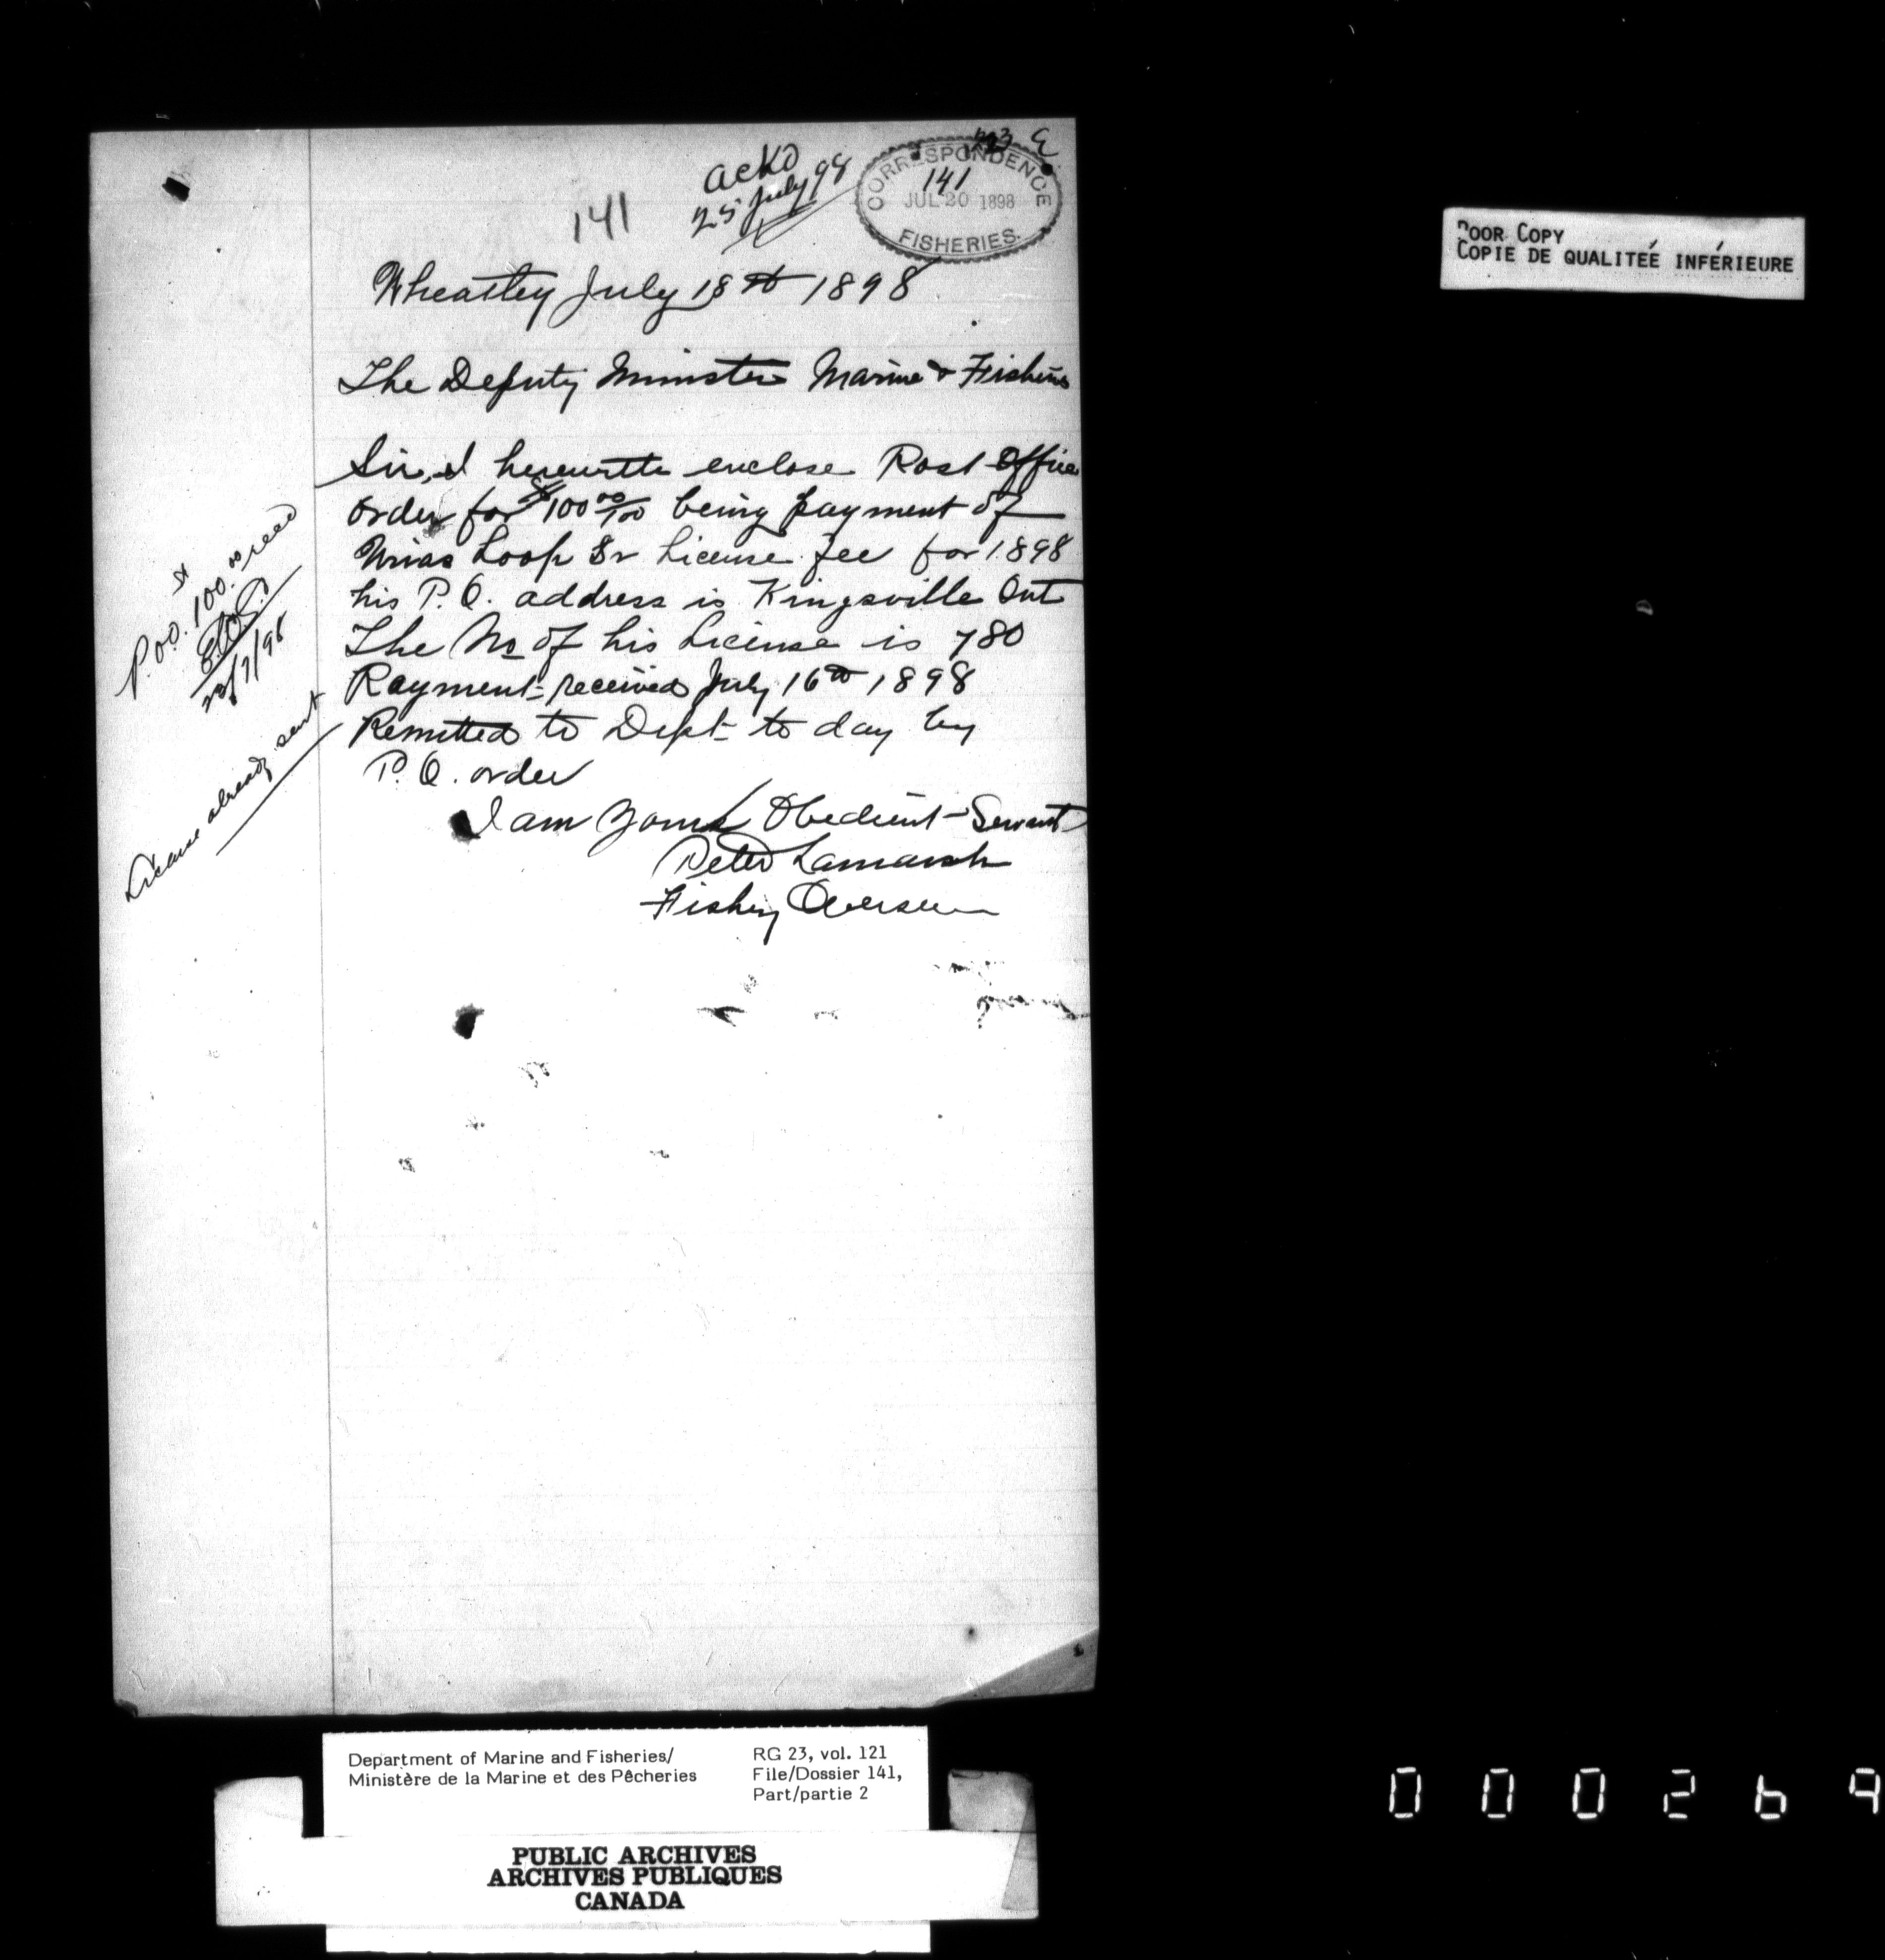 141
ackd
25 July 98
CORRESPONDENCE
141
JUL 20 1898
FISHERIES.
Wheatley July 18th 1898
The Deputy Minister Marine & Fisheries
Sir, I herewith enclose Post Office
order for $100 00/100 being payment of
Urias Loop Sr License fee for 1898
his P.O. address is Kingsville Ont
The No of his License is 780
Payment received July 16th 1898
Remitted to Dept to day by
P.O. order
I am Your Obedient Servant
Peter Lamarsh
Fishery Overseer
P.O.O. $100.00 recd
23/7/98
License already sent
POOR COPY
COPIE DE QUALITÉE INFÉRIEURE
Department of Marine and Fisheries/
Ministère de la Marine et des Pêcheries
RG 23, vol. 121
File/Dossier 141,
Part/partie 2
PUBLIC ARCHIVES
ARCHIVES PUBLIQUES
CANADA
000269